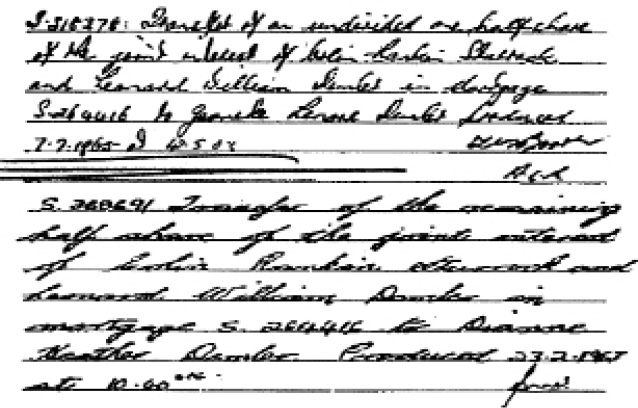 S.318378: Transfer of an undivided one half share
of the joint interest of Colin Rankin
and Leonard William Demler in Mortgage
S.264416 to Lenore Demler Produced
7.7.1965 at
S. Transfer of the remaining
half share of the joint interest
of Colin Rankin and
Leonard William Demler in
mortgage S. 264416 to Dianne
Heather Demler. Produced 23.2.1967
at 10.00